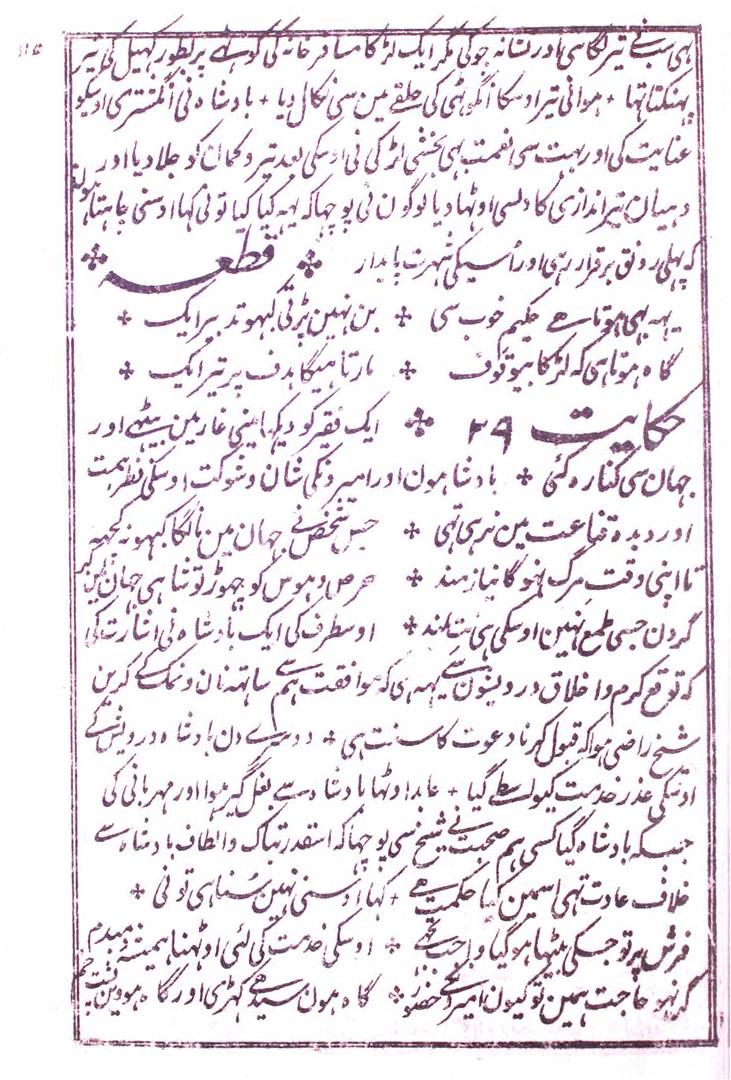 ۱۱۵
ہی سب نے تیر لگا سی اور نشانہ چوکی مگر ایک لڑکا مسافر خانہ کی کوٹھے پر بطور کھیل کی تیر
پھنکتا تھا + ہوا نی تیر اوسکا انگوٹھی کی حلقے مین سی نکال دیا + بادشاہ نی انگشتری اوسکو
عنایت کی اور بہت سی نعمت بہی بخشی لڑکی نی اوسکی بعد تیر و کمان کو جلا دیا اور
دہیان تیر اندازی کا دلسی اوٹھا دیا لوگون نی پوچھا کہ یہہ کیا کیا تونی کہا اوسنی چاہتا ہون
کہ پہلی رونق برقرار رہی اور اسیکی شہرت پایدار ✤ قطعہ ✤
یہہ بہی ہوتا ہے حکیم خوب سی ✤ بن نہین پڑتی کبہو تدبیر ایک ✤
گاہ ہوتا ہی کہ لڑکا بیوقوف ✤ مارتا ہیگا ہدف پر تیر ایک ✤
حکایت ۲۹ ✤ ایک فقیر کو دیکہا اپنی غار مین بیٹھے اور
جہان سی کنارہ کئی ✤ بادشاہون اور امیرونکی شان و شوکت اوسکی نظر ہمت
اور دیدہ قناعت مین نرہی تہی ✤ جس شخص نے جہان مین مانگا کبہو نہ کچہہ
تا اپنی وقت مرگ نہو گا نیازمند ✤ حرص و ہوس کو چھوڑ تو شاہی جہان مین کر
گردن جسی طمع نہین اوسکی ہی بلند ✤ اوسطرف کی ایک بادشاہ نی اشارت کی
کہ توقع کرم و اخلاق درویشون سے یہہ ہی کہ موافقت ہم سے ساتہہ نان و نمک کے کرین
شیخ راضی ہوا کہ قبول کرنا دعوت کا سنت ہی + دوسرے دن بادشاہ درویش کے
اوسکی عذر خدمت کیواسطے گیا + عابد اوٹھا بادشاہ سے بغل گیر ہوا اور مہربانی کی
جبکہ بادشاہ گیا کسی ہم صحبت نے شیخ سی پوچھا کہ اسقدر تپاک و الطاف بادشاہ سے
خلاف عادت تہی اسمین کیا حکمت ہے + کہا اوسنی نہین سنا ہی تونی ✤
فرش پر تو جسکی بیٹھا ہو گیا واجب تجھے ✤ اوسکی خدمت کی لئی اوٹھنا ہمیشہ دمبدم
گر نہو حاجت ہمین تو کیون امیرونکے حضور ✤ گاہ ہون سیدھے کہڑی اور گاہ ہووین پشت خم